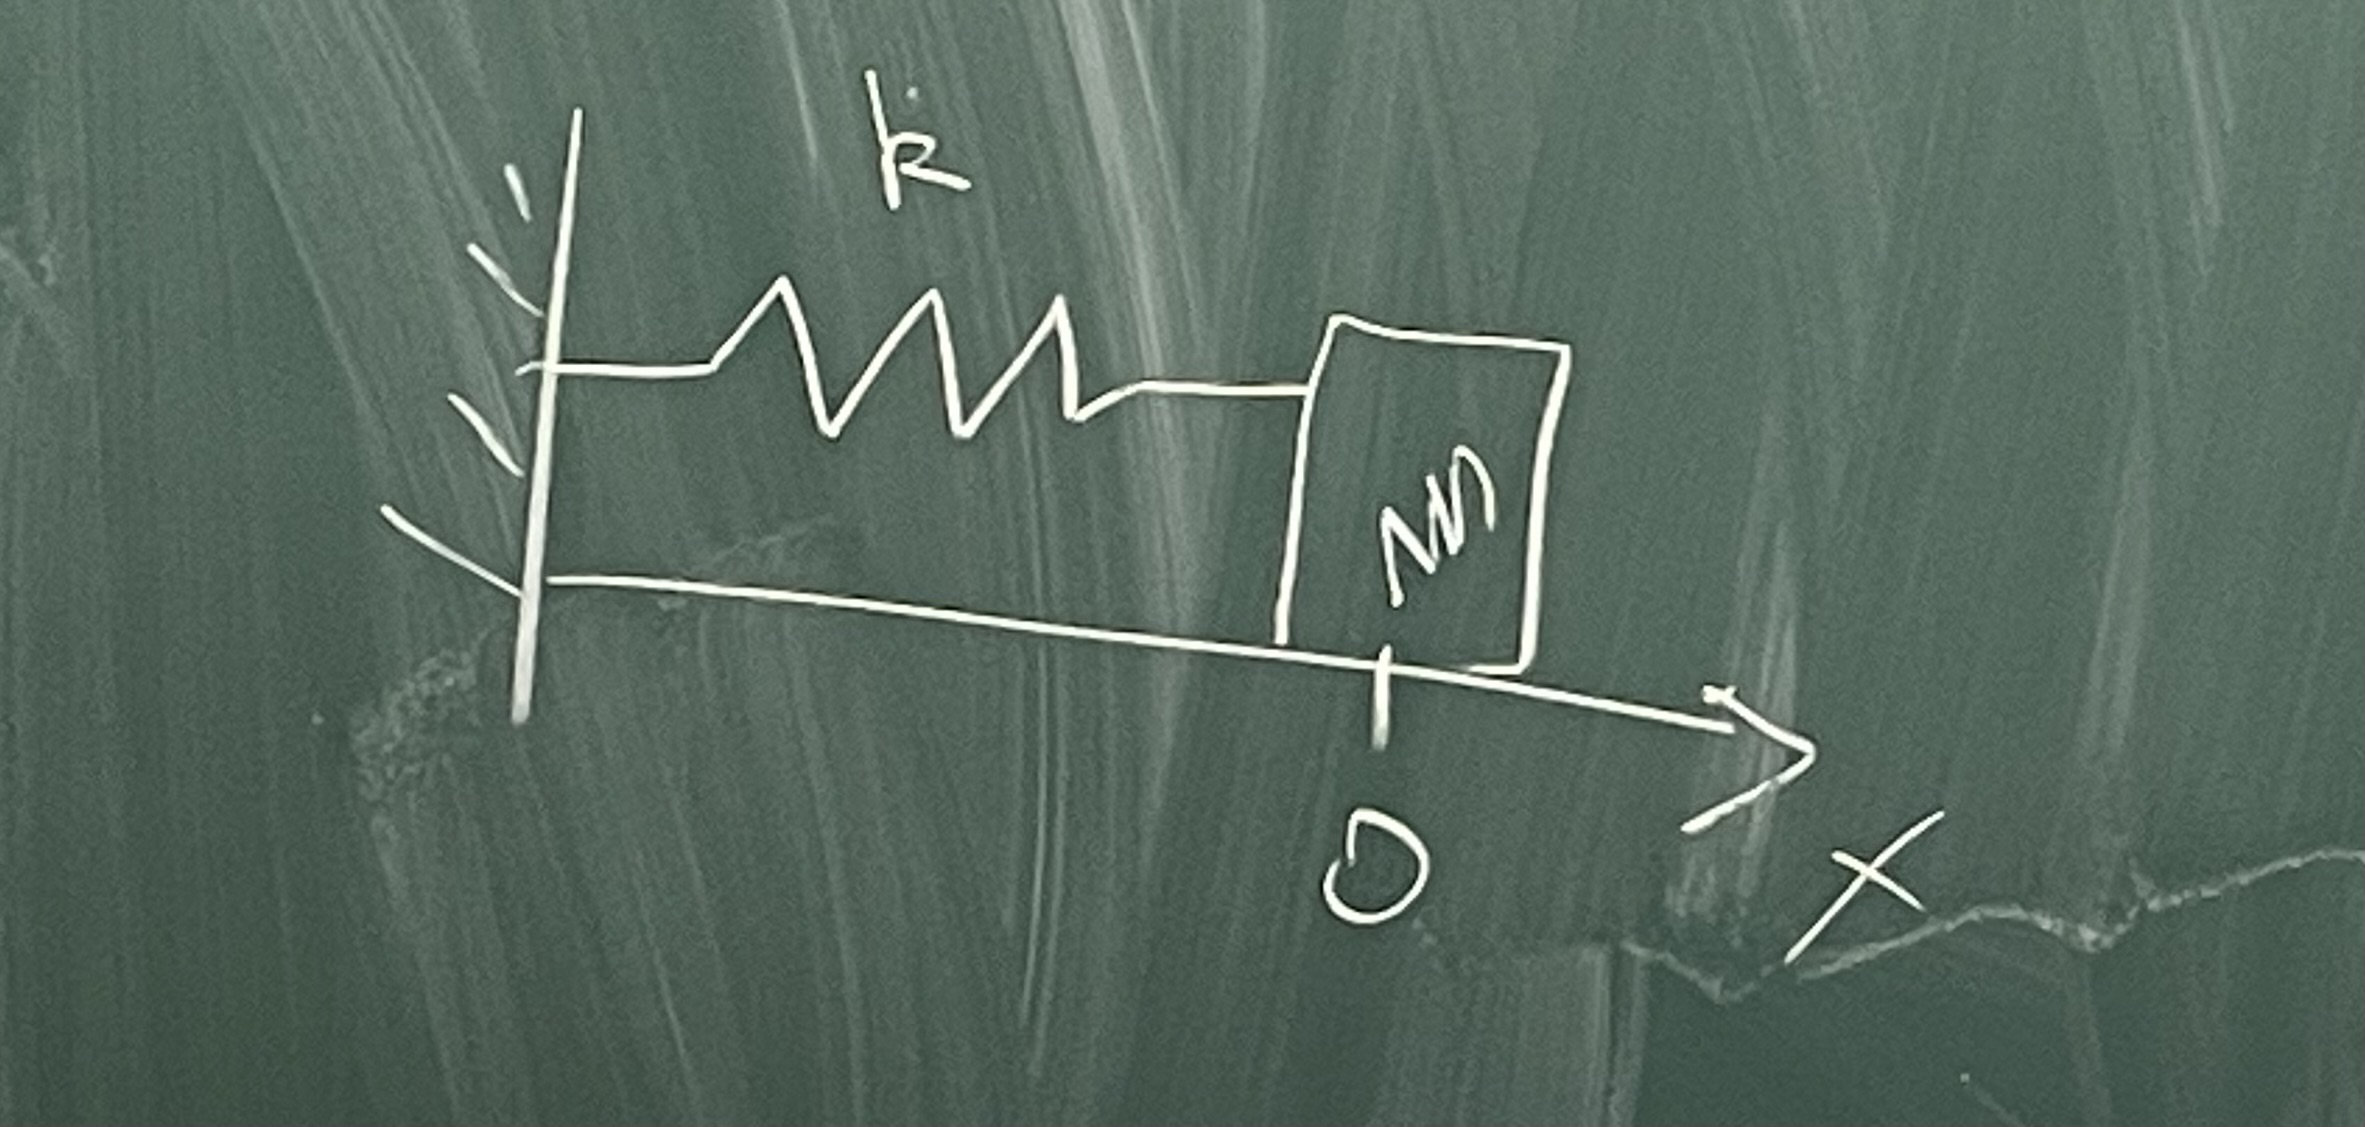 k
m
0
x